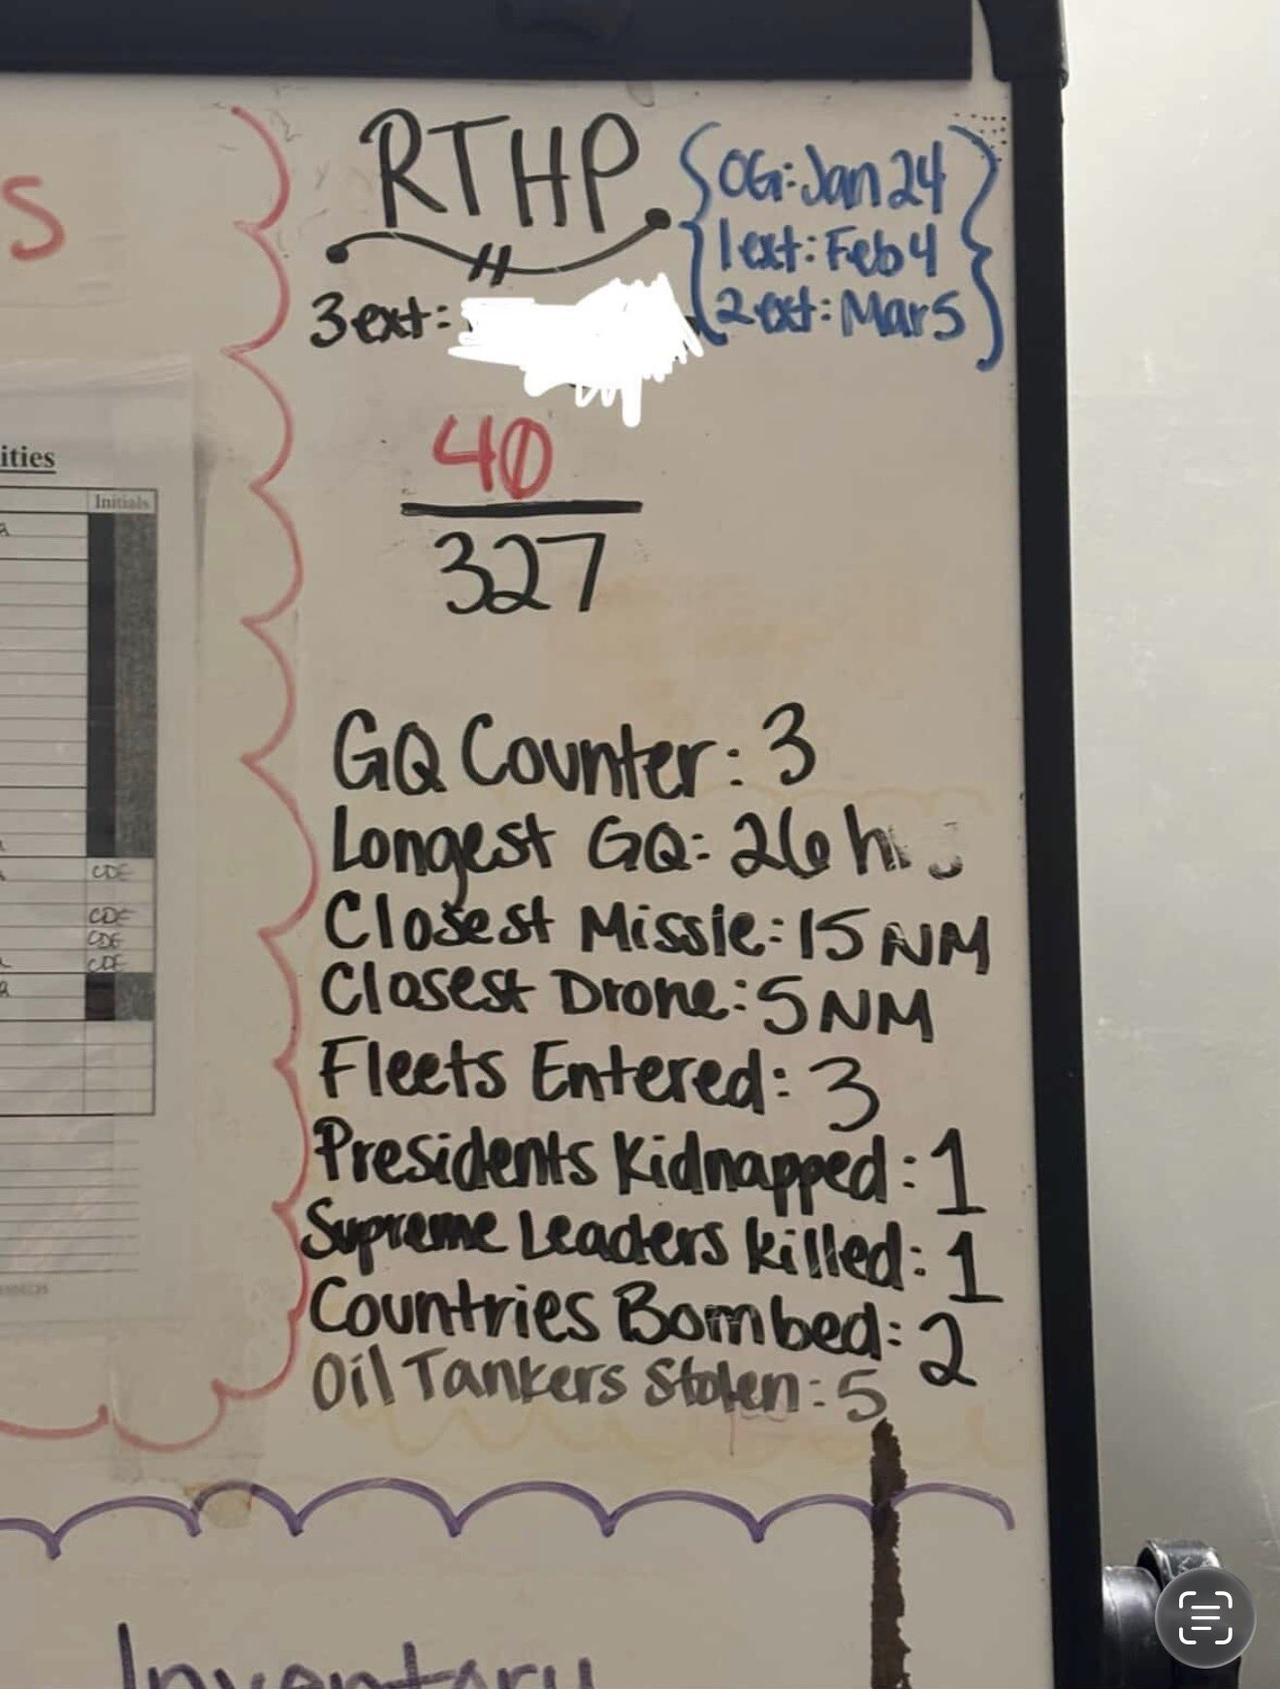 S
RTHP
OG: Jan 24
1ext: Feb 4
2ext: Mar 5
3ext:
40
327
ities
Initials
CDE
CDE
CDE
CDE
GQ Counter: 3
Longest GQ: 26 hrs
Closest Missle: 15 NM
Closest Drone: 5 NM
Fleets Entered: 3
Presidents Kidnapped: 1
Supreme Leaders killed: 1
Countries Bombed: 2
Oil Tankers Stolen: 5
Inventory